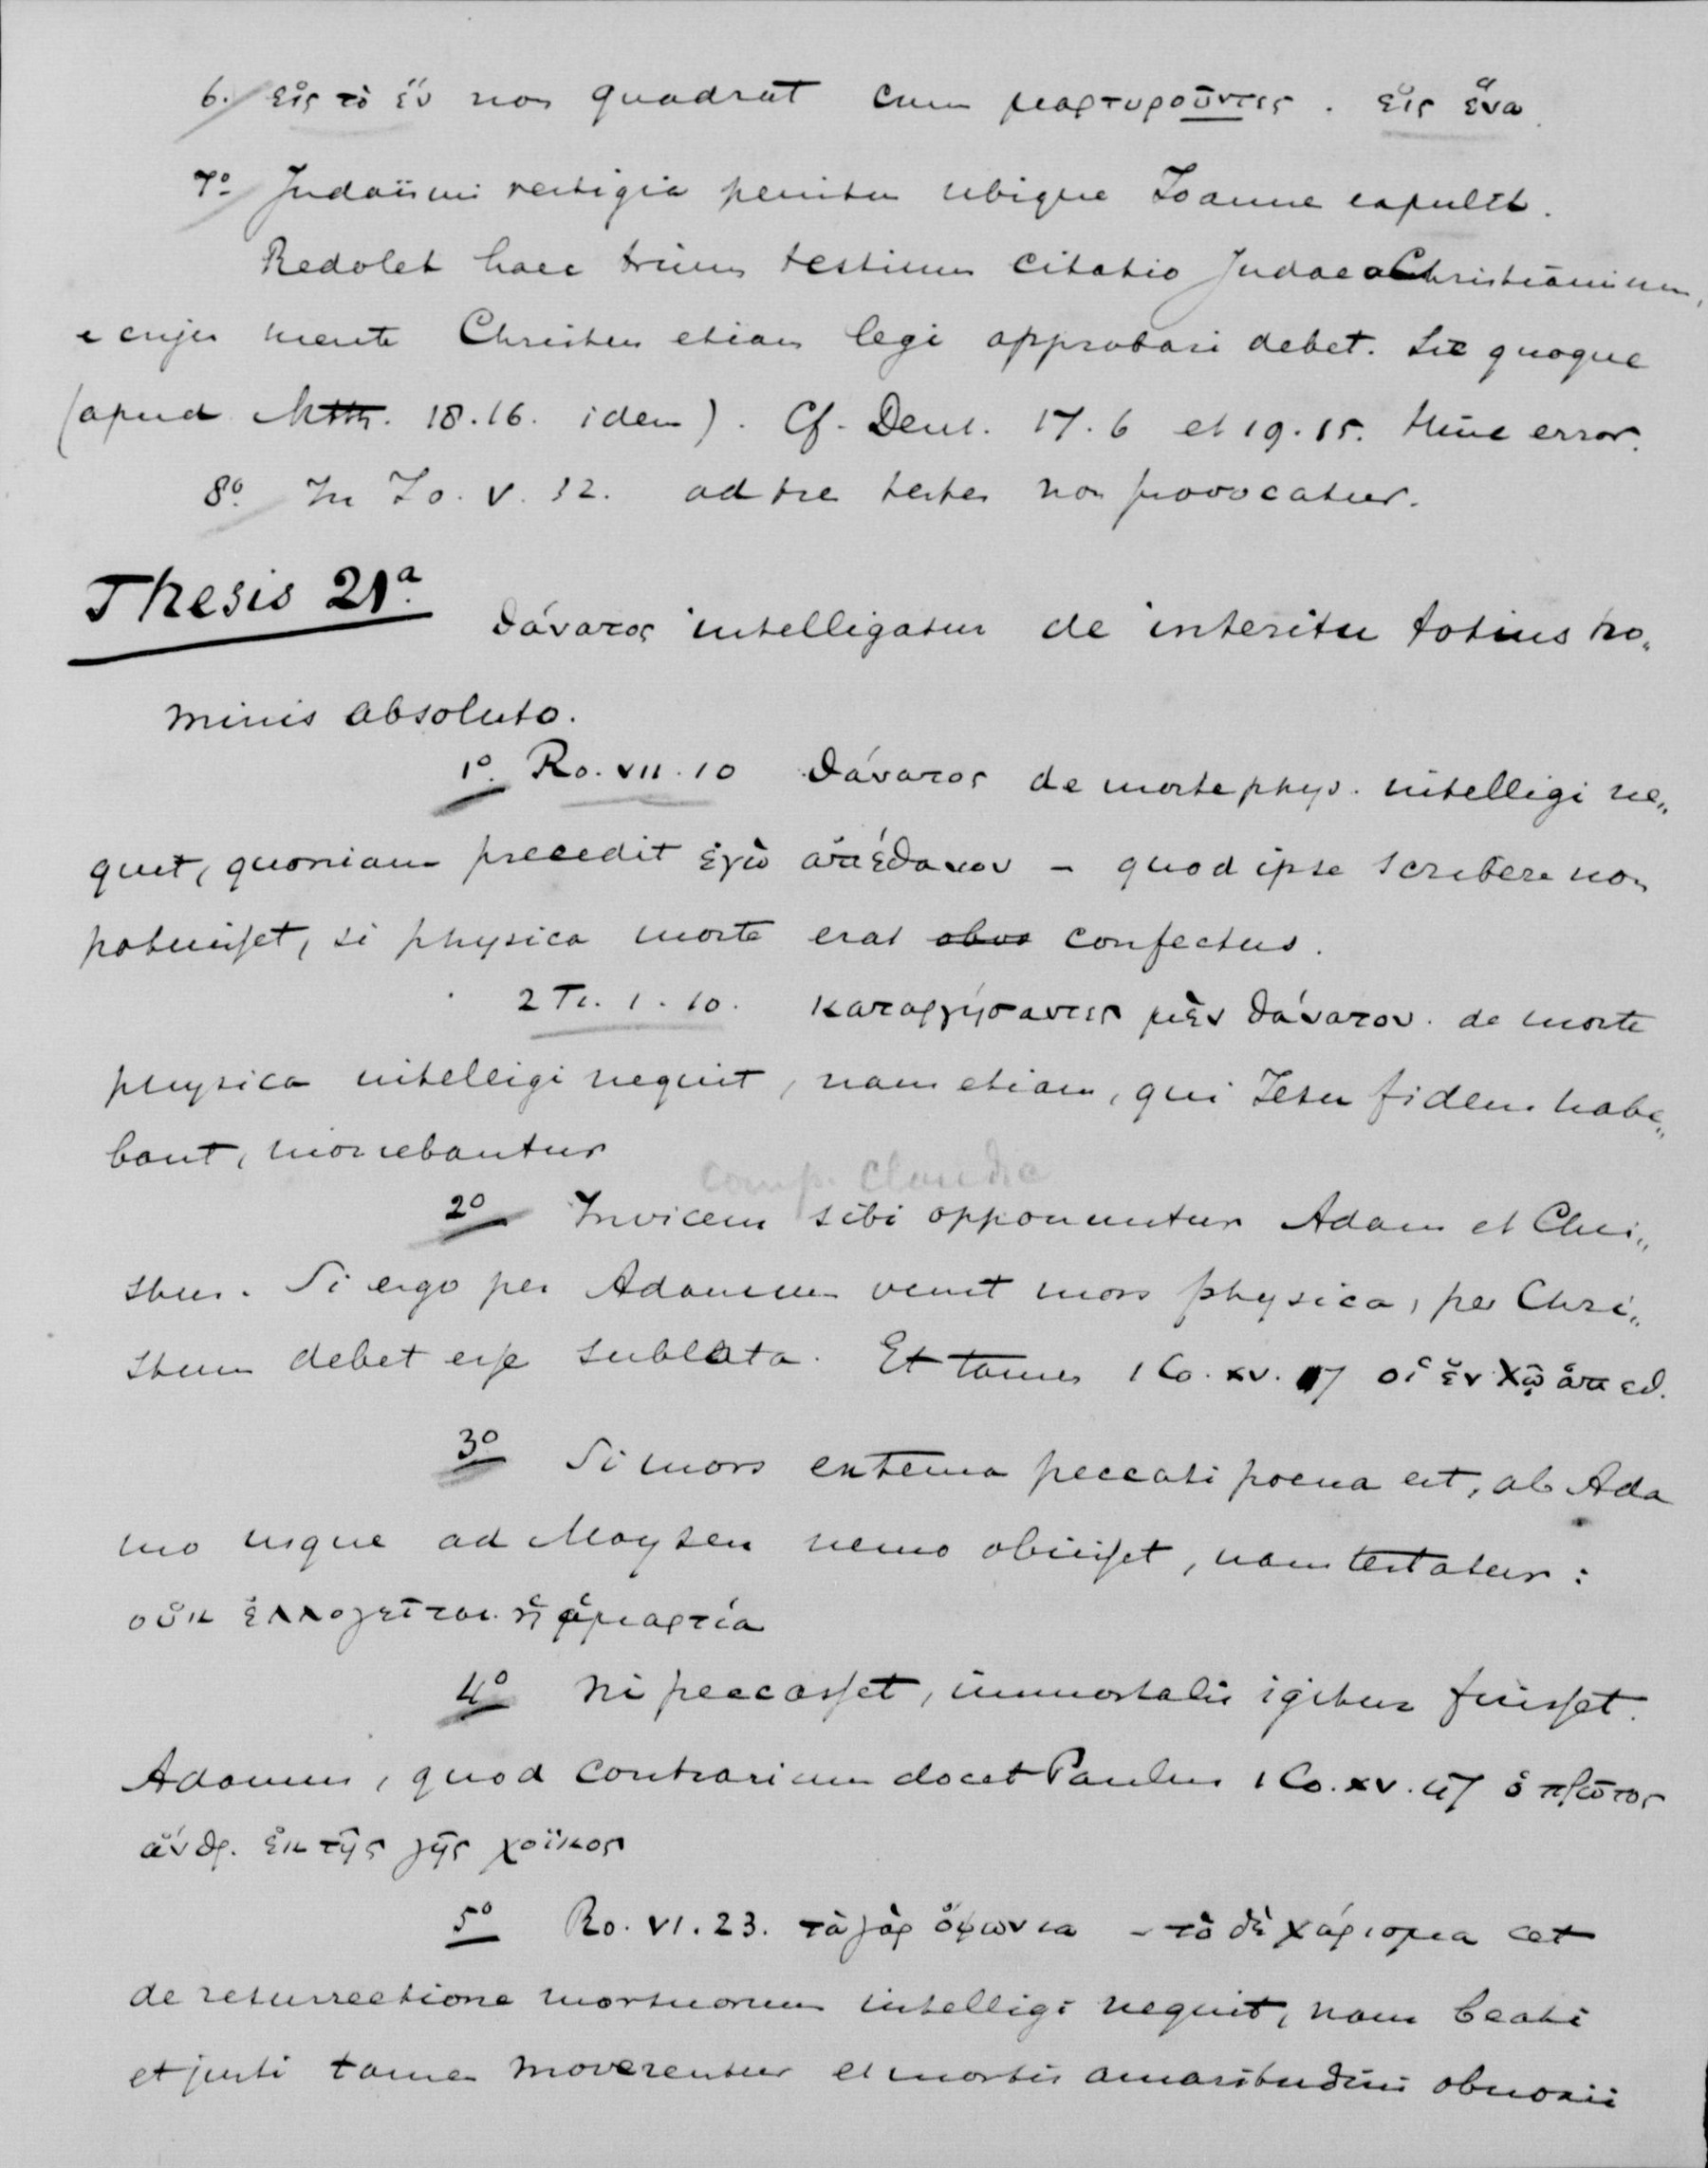 6. εἰς τὸ ἕν non quadrat cum μαρτυροῦντες. εἰς ἕνα.
7o Judaismi vestigia penitus ubique Joanne expulit.
Redolet haec trium testium citatio JudaeoChristianismum,
e cujus mente Christus etiam legi approbari debet. Sic quoque
(apud Mtth. 18.16. idem). Cf. Deut. 17.6 et 19.15. Hinc error.
8o In Jo. V. 32. ad tres testes non provocatur.
Thesis 21a.
θάνατος intelligatur de interitu totius ho„
minis absoluto.
1o. Ro. VII. 10 θάνατος de morte phys. intelligi ne„
quit, quoniam precedit ἐγὼ ἀπέθανον - quod ipse scribere non
potuisset, si physica morte erat confectus.
2 Ti. 1. 10. καταργήσαντες μὲν θάνατον. de morte
physica intelligi nequit, nam etiam, qui Jesu fidem habe„
bant, moriebantur
comp. Claudia
2o Invicem sibi opponuntur Adam et Chri„
stus. Si ergo per Adamum venit mors physica, per Chri„
stum debet esse sublata. Et tamen 1 Co. XV. 17 οἱ ἐν Χῷ ἀπεθ.
3o Si mors externa peccati poena est, ab Ada
mo usque ad Moysen nemo obiisset, nam testatur:
οὐκ ἐλλογεῖται ἡ ἁμαρτία
4o Ni peccasset, immortalis igitur fuisset.
Adamus, quod contrarium docet Paulus 1 Co. XV. 47 ὁ πρῶτος
ἄνθρ. ἐκ τῆς γῆς χοϊκος
5o Ro. VI. 23. τὰ γὰρ ὀψωνια - τὸ δὲ χάρισμα cet
de resurrectione mortuorum intelligi nequit, nam beati
et justi tamen moverentur et mortis amaritudini obnoxii